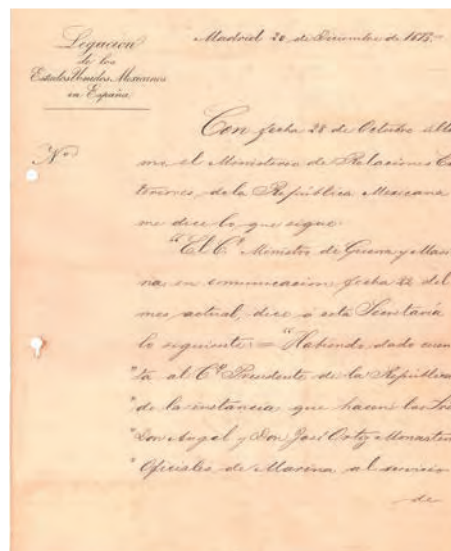 Legacion
de los
Estados Unidos Mexicanos
en España
Madrid 20 de Diciembre de 1878.
Nº
Con fecha 28 de Octubre ulti
mo, el Ministerio de Relaciones Ex
teriores de la República Mexicana
me dice lo que sigue:
"El Cº Ministro de Guerra y Mari
na en comunicacion fecha 22 del
mes actual, dice a esta Secretaria
lo siguiente: = "Habiendo dado cuen
"ta al Cº Presidente de la República
"de la instancia que hacen los Sres
"Don Angel y Don José Ortiz Monasterio
"Oficiales de Marina al servicio
de